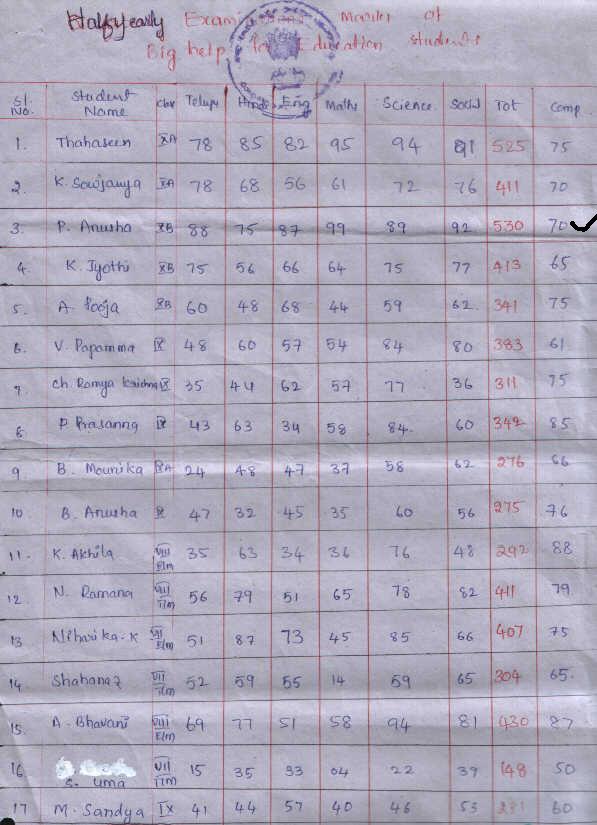 Halfyearly Examinations Marks of
Big help for Education students
Sl. No. Student Name Class Telugu Hindi Eng Maths Science Social Tot Comp
1. Thahaseen XA 78 85 82 95 94 91 525 75
2. K. Sowjanya XA 78 68 56 61 72 76 411 70
3. P. Anusha XB 88 75 87 99 89 92 530 70 ✓
4. K. Jyothi XB 75 56 66 64 75 77 413 65
5. A. Pooja XB 60 48 68 44 59 62. 341 75
6. V. Papamma IX 48 60 57 54 84 80 383 61
7. Ch. Ramya Krishna IX 35 44 62 57 77 36 311 75
8 P Prasanna IX 43 63 34 58 84. 60 342 85
9 B. Mounika IXA 24 48 47 37 58 62 276 66
10. B. Anusha IX 47 32 45 35 60 56 275 76
11. K. Akhila VIII E/m 35 63 34 36 76 48 292 88
12. N. Ramana VIII T/m 56 79 51 65 78 82 411 79
13 Niharika. K VII E/m 51 87 73 45 85 66 407 75
14 Shahanaz VII T/m 52 59 55 14 59 65 304 65.
15. A. Bhavani VIII E/m 69 77 51 58 94 81 430 87
16 S. Uma VII T/m 15 35 33 04 22 39 148 50
17 M. Sandya IX 41 44 57 40 46 53 281 60